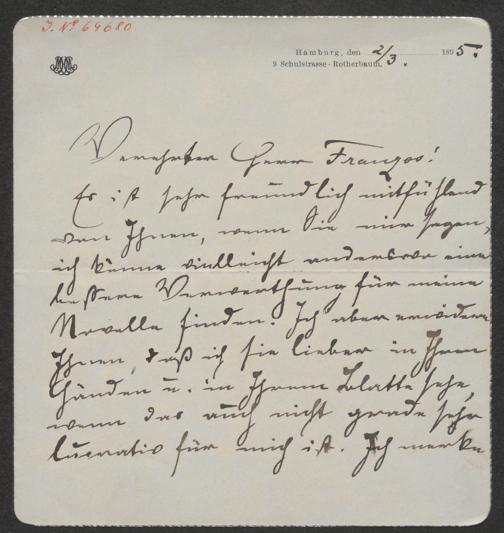 J. Nº 64680
Hamburg, den 2/3. 1895.
9 Schulstrasse - Rotherbaum.
Verehrter Herr Franzos!
Es ist sehr freundlich mitfühlend
von Ihnen, wenn Sie mir sagen,
ich könne vielleicht anderswo eine
bessere Verwerthung für meine
Novelle finden. Ich aber erwidere
Ihnen, daß ich sie lieber in Ihren
Händen u. in Ihrem Blatte sehe,
wenn das auch nicht grade sehr
lucrativ für mich ist. Ich merke